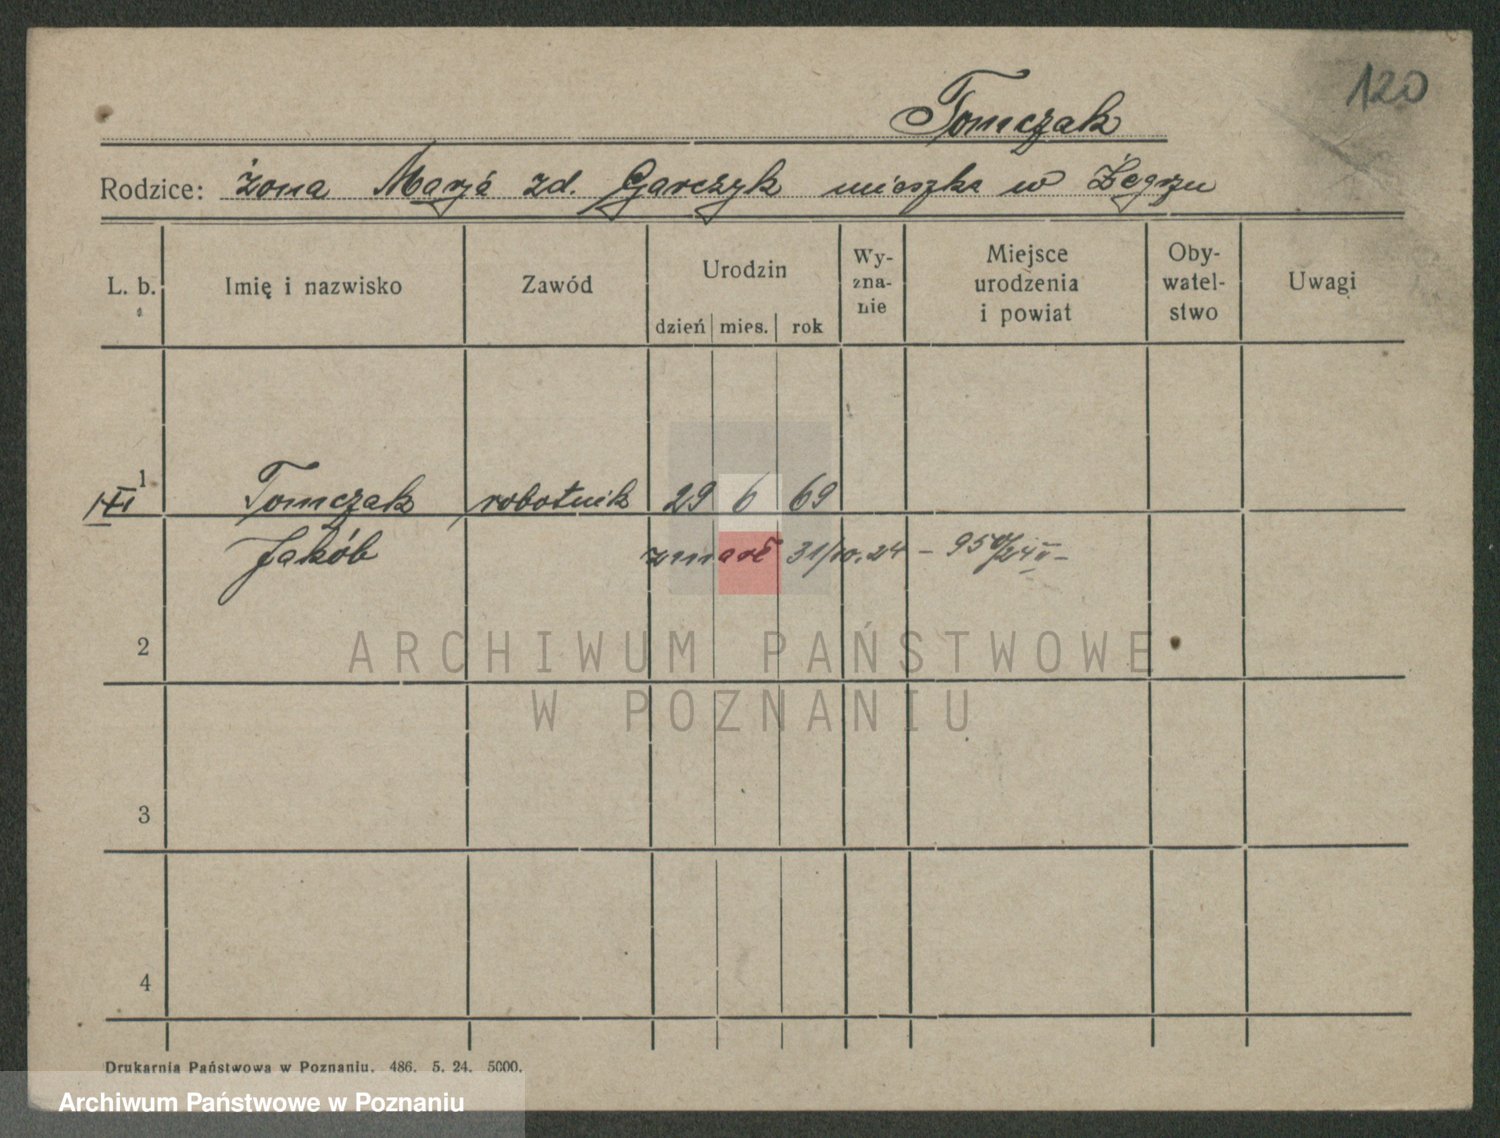 120
Tomczak
Rodzice: żona Marja zd. Garczyk mieszka w Żegrzu
L. b. Imię i nazwisko Zawód Urodzin dzień mies. rok Wy-zna-nie Miejsce urodzenia i powiat Oby-watel-stwo Uwagi
1 Tomczak robotnik 29 6 69
Jakób zmarł 31/10.24 –
2
ARCHIWUM PAŃSTWOWE
W POZNANIU
3
4
Drukarnia Państwowa w Poznaniu. 486. 5. 24. 5000.
Archiwum Państwowe w Poznaniu